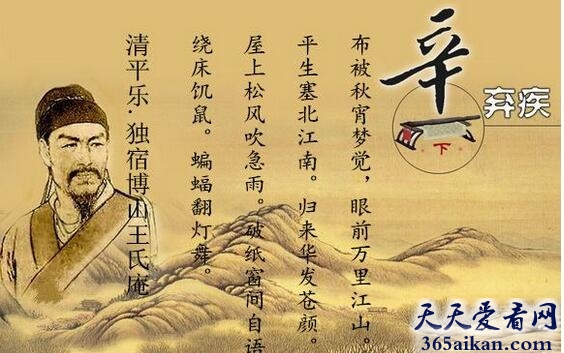 辛
弃疾
下
布被秋宵梦觉，眼前万里江山。
平生塞北江南。归来华发苍颜。
屋上松风吹急雨。破纸窗间自语
绕床饥鼠。蝙蝠翻灯舞。
清平乐·独宿博山王氏庵
天天爱看网
365aikan.com